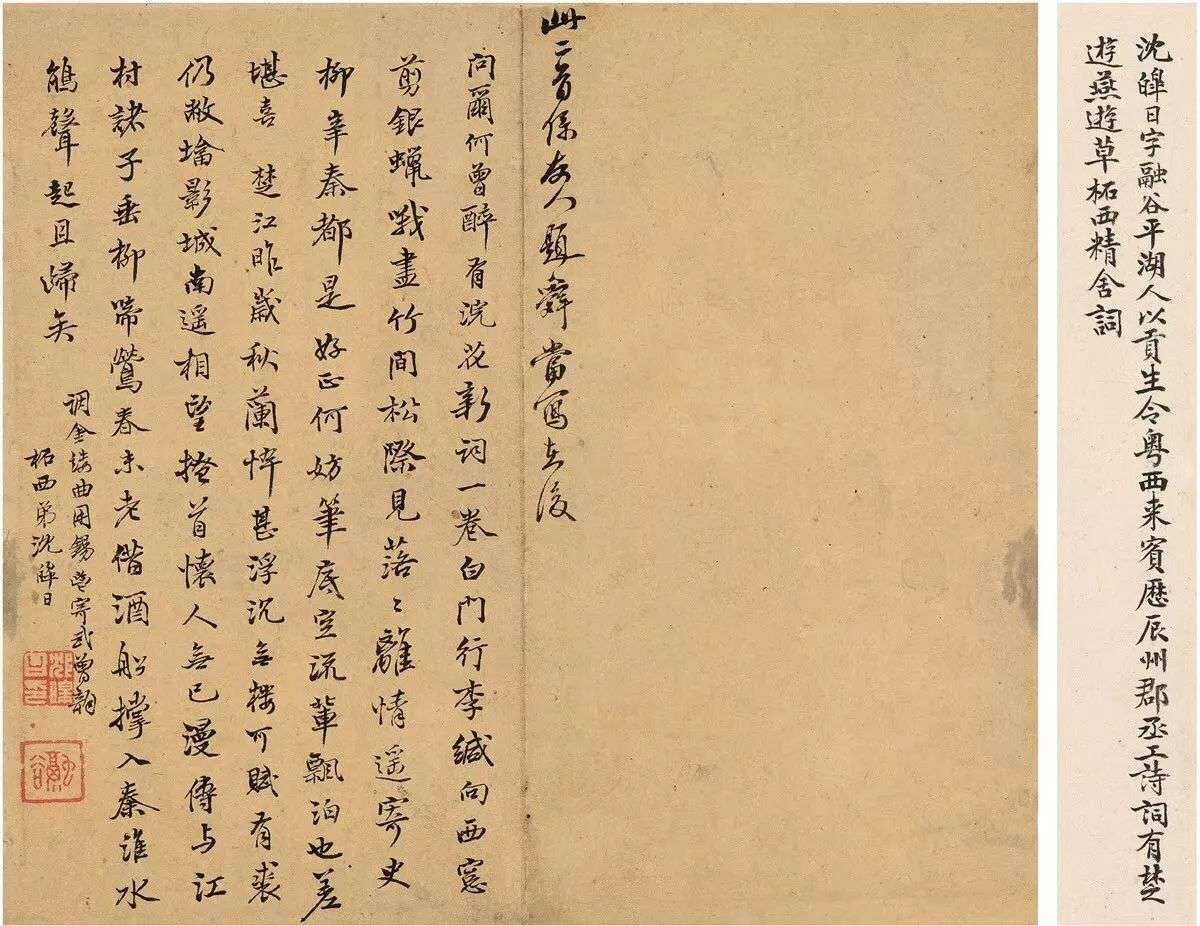 沈皞日字融谷平湖人以貢生令粵西来賓歷辰州郡丞工詩詞有楚
遊燕遊草柘西精舍詞
此二首係友人題舜當寫在後
問爾何曾醉有浣花新詞一卷白門行李緘向西窓
剪銀蠟哦盡竹間松際見落〻離情遥寄史
柳辛秦都是好正何妨筆底空流輩飄泊也差
堪喜 楚江昨歲秋蘭悴甚浮沉無樓可賦有裘
仍敝墖影城南遥相望搔首懷人無已漫傳与江
村諸子垂柳啼鶯春未老借酒船撑入秦淮水
鵑聲起且歸矣
调金縷曲用錫鬯寄武曾韻
柘西弟沈皞日
融谷